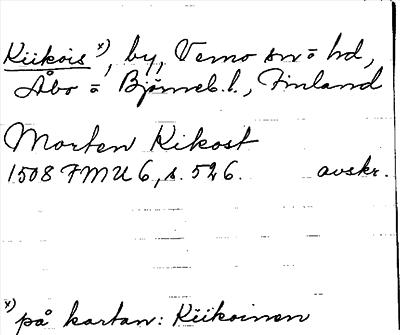 Kiikois x), by, Vemo sn o hd,
Åbo o Björneb. l., Finland
Morten Kikost
1508 FMU 6, s. 526. avskr.
x) på kartan: Kiikoinen